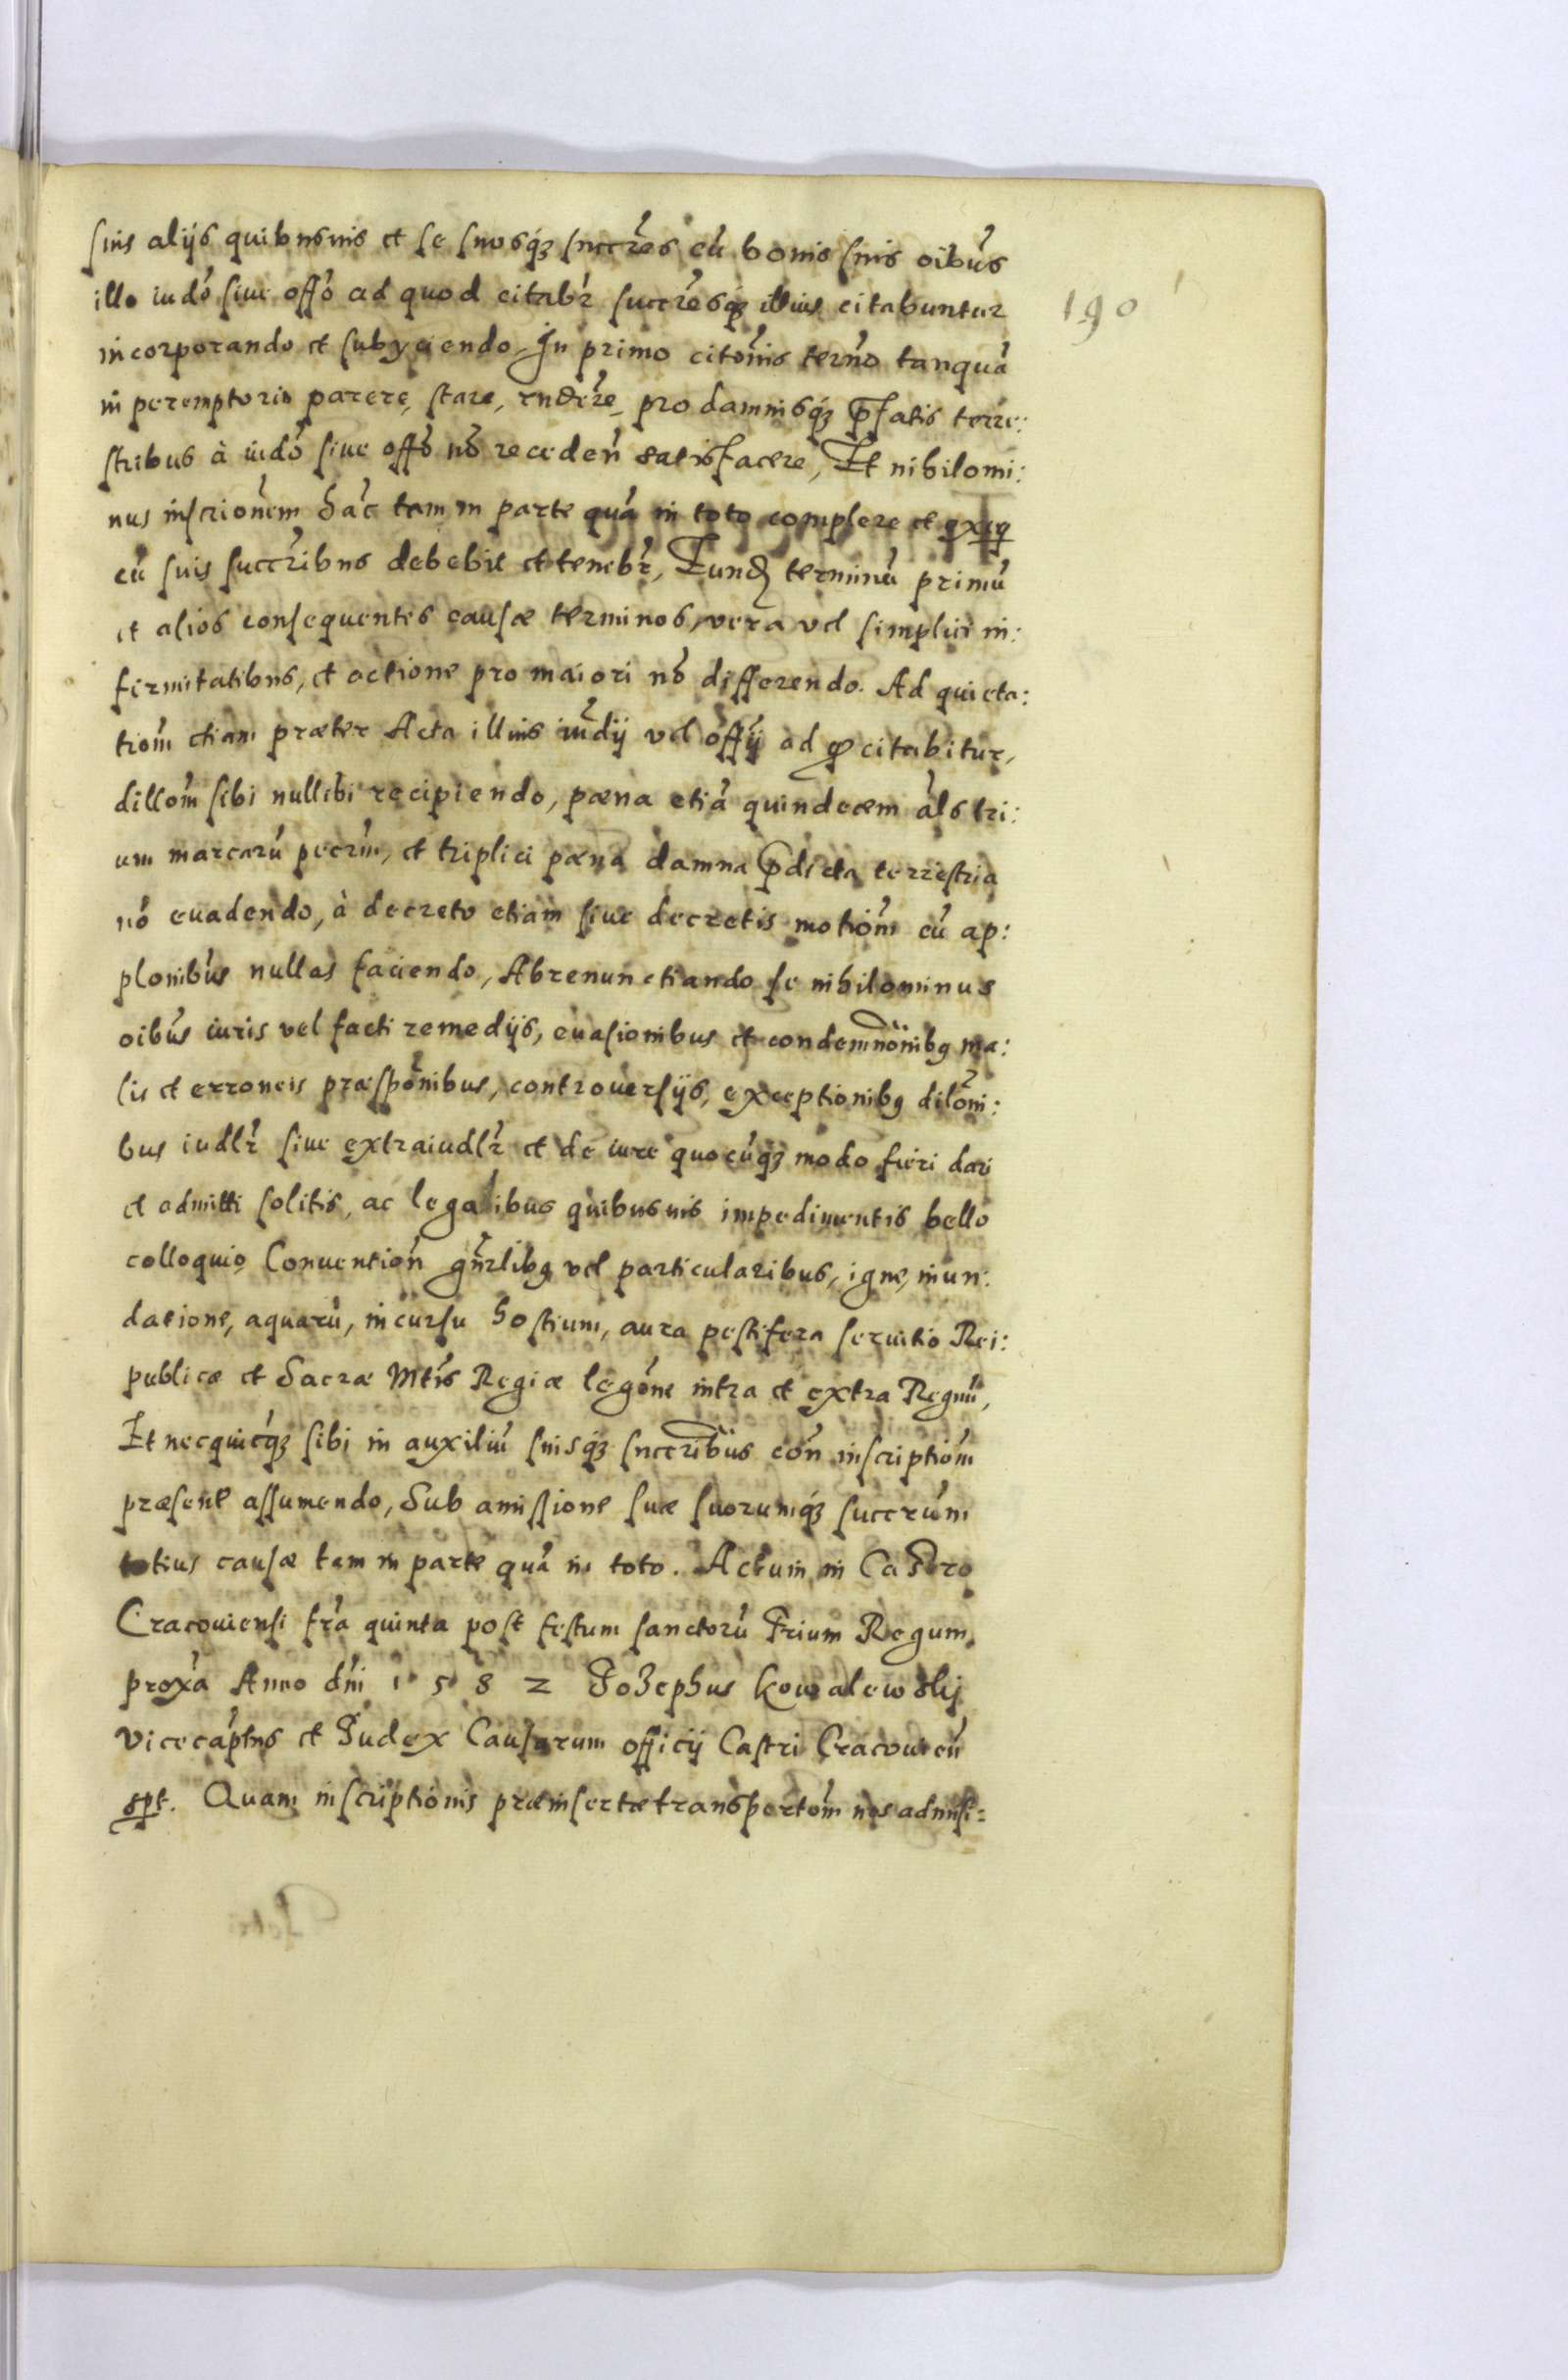 suis alijs quibusuis et se suosq́ȝ succr̃es cũ bonis suis oibũs
illo iudõ siue offõ ad quod citabr̃ succr̃esq́ȝ illius citabuntur
190
incorporando et subyciendo, In primo citom̃is term̃o tanquã
in peremptorio parere, stare, rndẽre, pro damnisq́ȝ p̃fatis terre:
stribus à iudõ siue offõ nõ receden̄ satisfacere, Et nihilomi:
nus inscrionẽm hãc tam in parte quã in toto complere et exeq
cũ suis succr̃ibus debebit et tenebr̃, Eund terminũ primũ
et alios consequentes causæ terminos, vera vel simplici in:
firmitatibus, et actione pro maiori nõ differendo. Ad quieta:
tiom̃ etiam præter Acta illius iud̃ij vel offij̃ ad q citabitur,
dillom̃ sibi nullibi recipiendo, pæna etiã quindecem als̃ tri:
um marcarũ pecr̃m, et triplici pæna damna p̃dicta terrestria
nõ euadendo, à decreto etiam siue decretis motiom̃ cũ ap:
plonibũs nullas faciendo, Abrenunctiando se nihilominus
oibũs iuris vel facti remedijs, euasionibus et condemnõnibꝫ ma:
lis et erroneis præspõnibus, controuersijs, exceptionibꝫ dilõni:
bus iudlr̃ siue extraiudlr̃ et de iure quocũq́ȝ modo fieri dari
et admitti solitis, ac legalibus quibusuis impedimentis bello
colloquio Conuention̄ gñrlibꝫ vel particularibus, igne, inun:
datione, aquarũ, incursu hostium, aura pestifera seruitio Rei:
publicæ et Sacræ Mtĩs Regiæ legõne intra et extra Regnũ,
Et necquicq́ȝ sibi in auxiliũ suisq́ȝ succrĩbus con̄ inscriptiom̃
præsent assumendo, Sub amissione suæ suorumq́ȝ succrũm
totius causæ tam in parte quã in toto. Actum in Castro
Cracouiensi fr̃a quinta post festum sanctorũ Trium Regum
proxã Anno dñi 1 5 8 2 Josephus Kowalewskij
Vicecãptns et Judex Causarum officij Castri Cracouien̄
spt. Quam inscriptionis præinsertæ transportom̃ nos admisi=